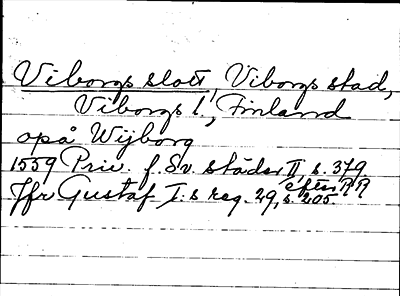 Viborgs slott, Viborgs stad,
Viborgs l., Finland
opå Wijborg
1559 Priv. f. Sv. städer II, s. 379
efter RR
Jfr Gustaf I:s reg. 29, s. 205